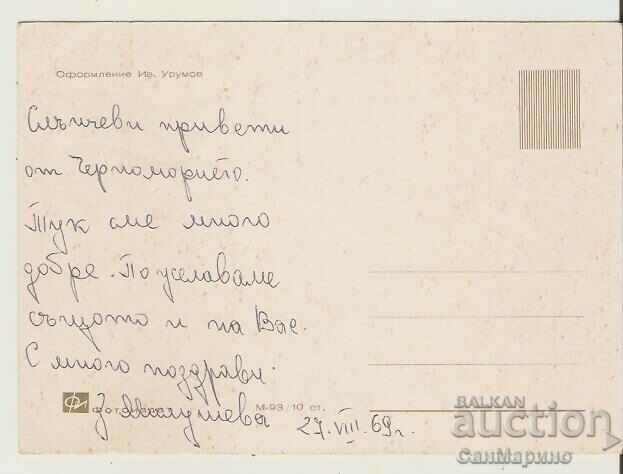 Оформление Ив. Урумов
Слънчеви привети
от Черноморието.
Тук сме много
добре. Пожелаваме
същото и на Вас.
С много поздрави:
М-93/10 ст.
27.VIII.69г.
BALKAN
auction
СанМарино